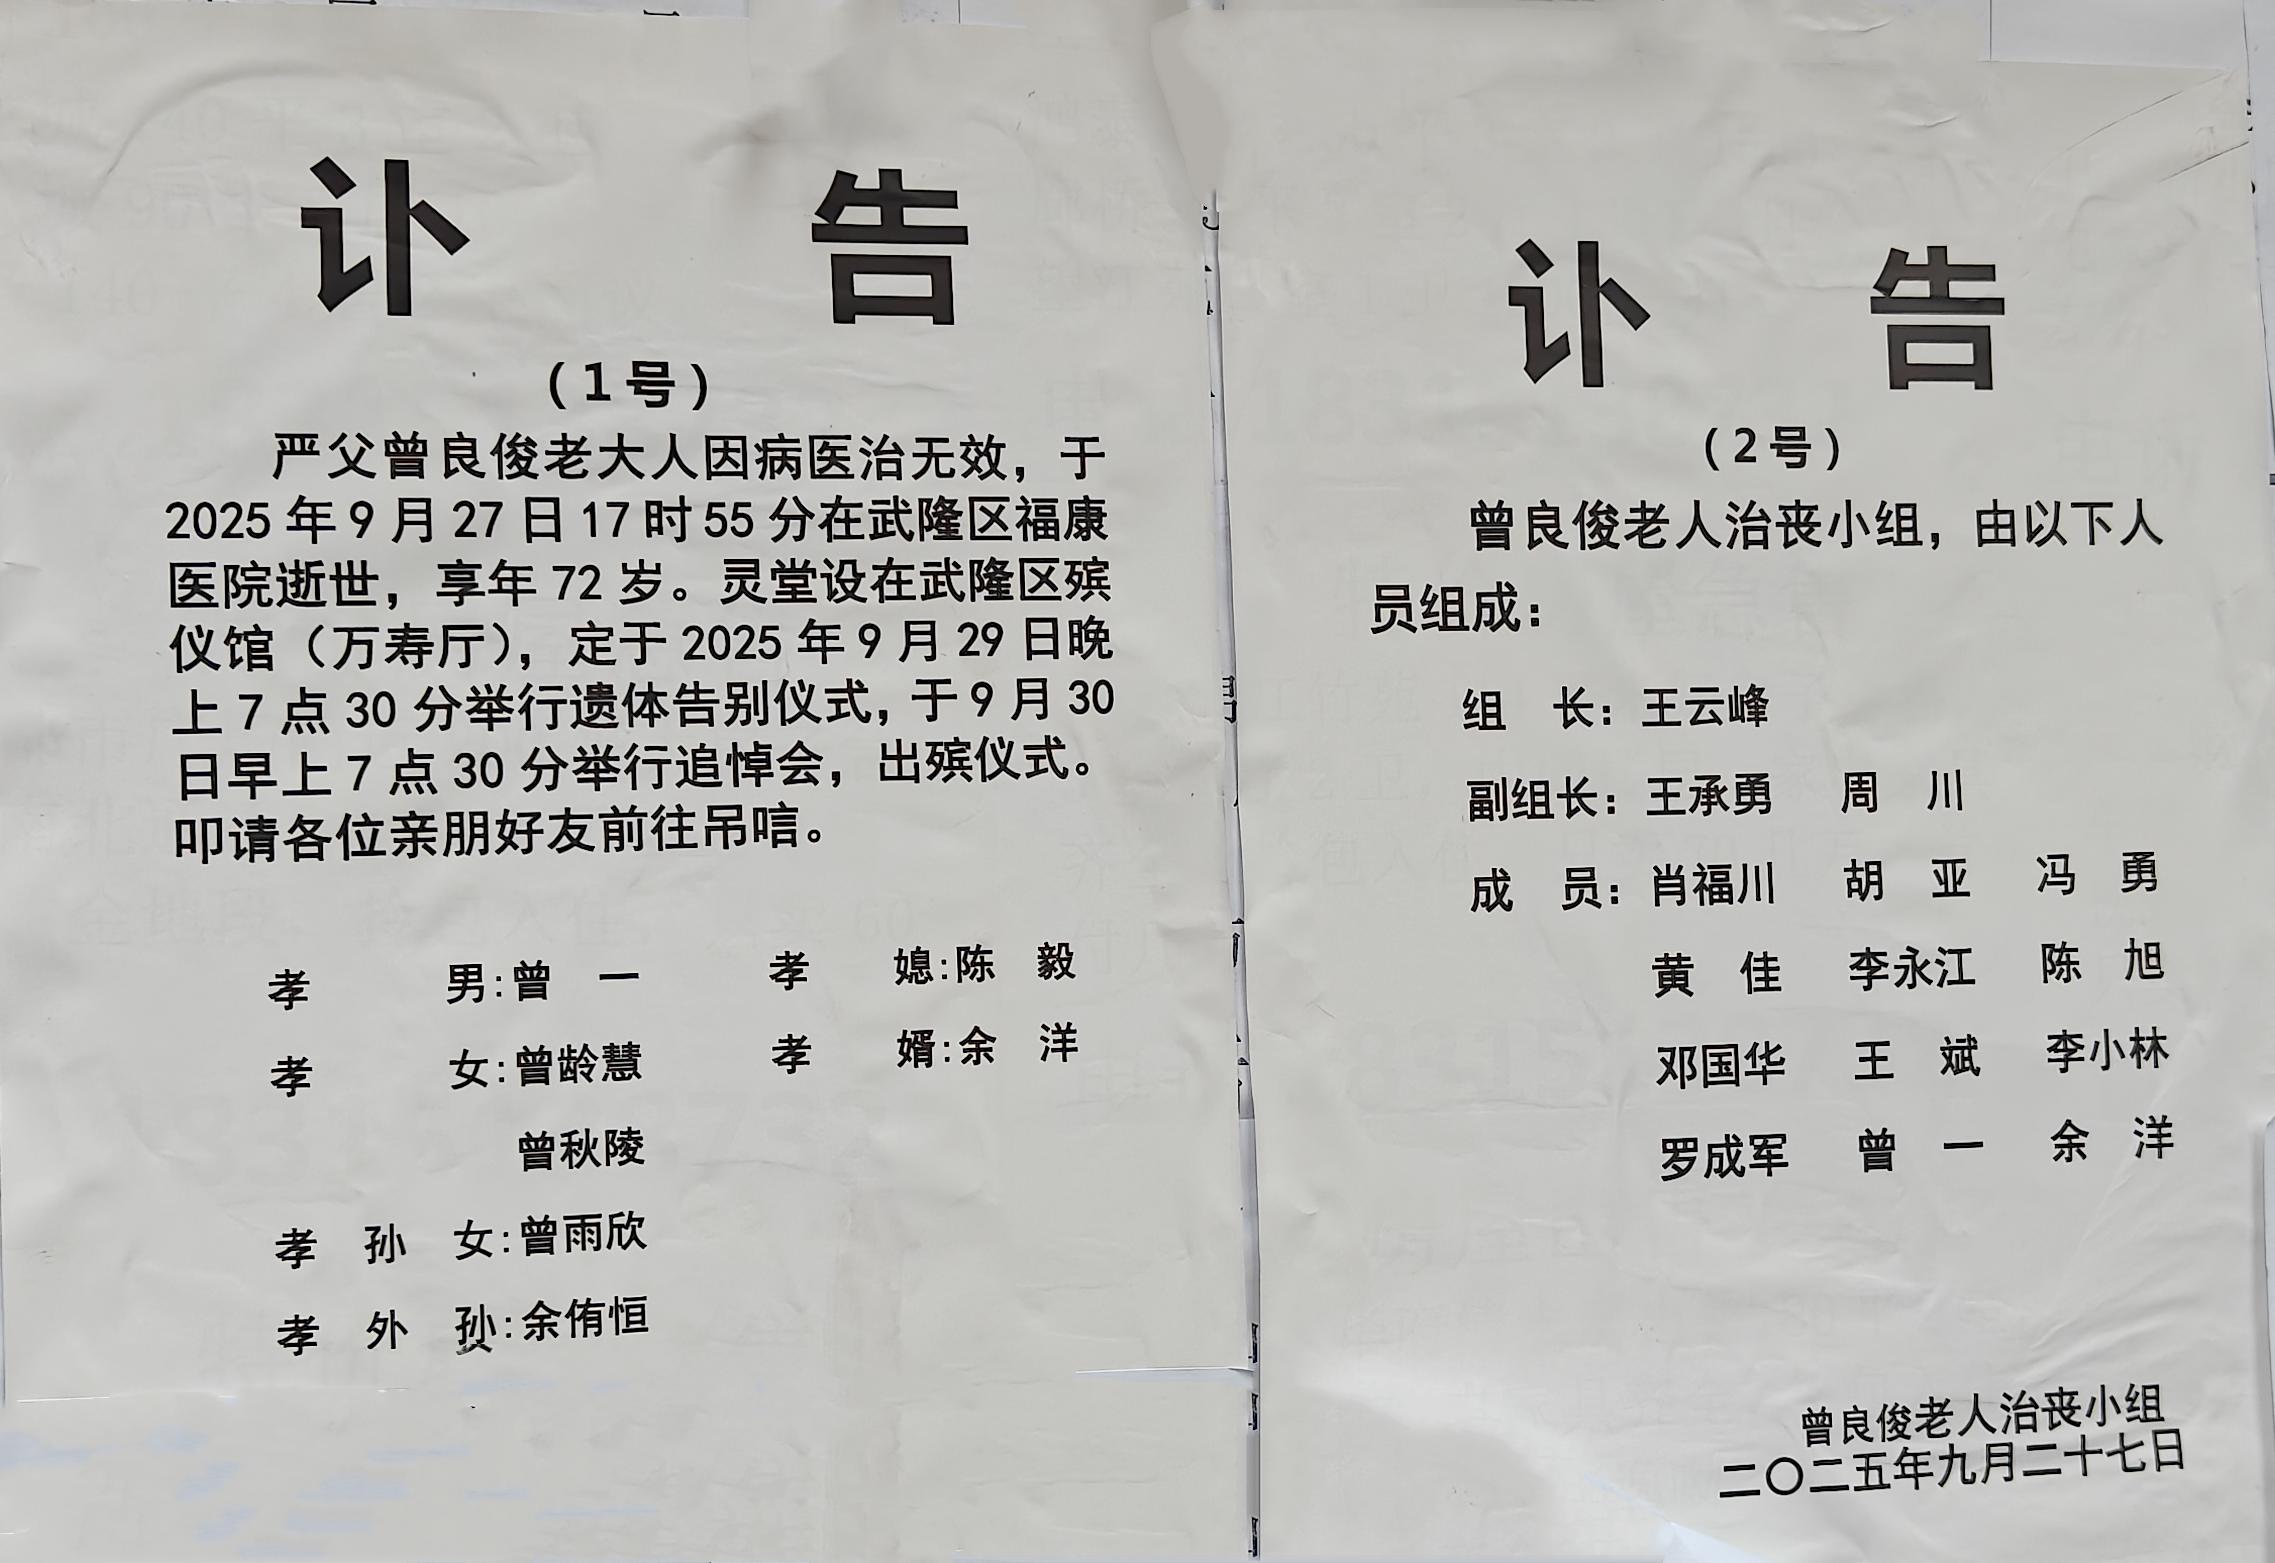 讣 告
（1号）
严父曾良俊老大人因病医治无效，于
2025年9月27日17时55分在武隆区福康
医院逝世，享年72岁。灵堂设在武隆区殡
仪馆（万寿厅），定于2025年9月29日晚
上7点30分举行遗体告别仪式，于9月30
日早上7点30分举行追悼会，出殡仪式。
叩请各位亲朋好友前往吊唁。
孝 男：曾 一 孝 媳：陈 毅
孝 女：曾龄慧 孝 婿：余 洋
曾秋陵
孝 孙 女：曾雨欣
孝 外 孙：余侑恒
讣 告
（2号）
曾良俊老人治丧小组，由以下人
员组成：
组 长：王云峰
副组长：王承勇 周 川
成 员：肖福川 胡 亚 冯 勇
黄 佳 李永江 陈 旭
邓国华 王 斌 李小林
罗成军 曾 一 余 洋
曾良俊老人治丧小组
二〇二五年九月二十七日